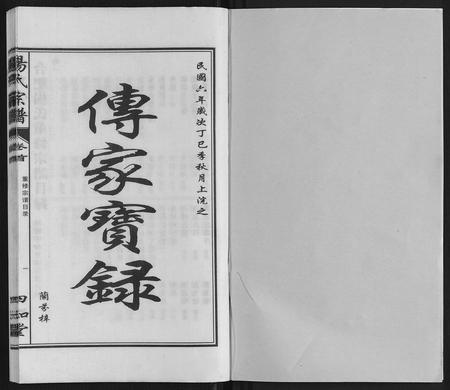 民國六年歲次丁巳季秋月上浣之
傳家寶録
蘭芳梓
楊氏宗譜
卷首
重修宗谱目录
一
四知堂